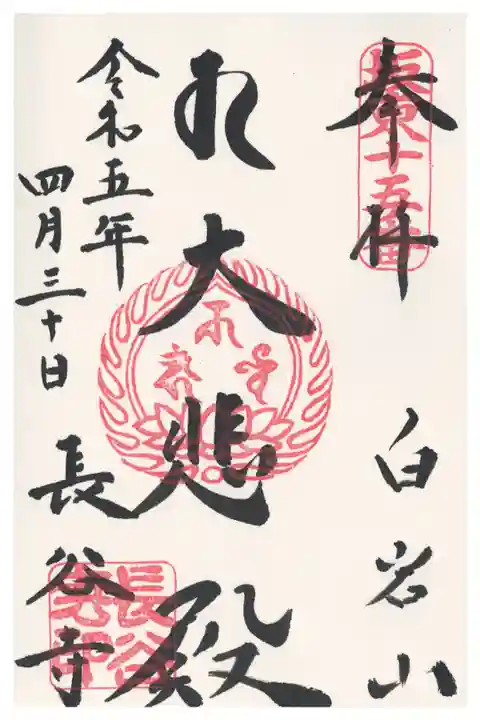 奉拝
坂東十五番
白岩山
大悲殿
令和五年
四月三十日
長谷寺